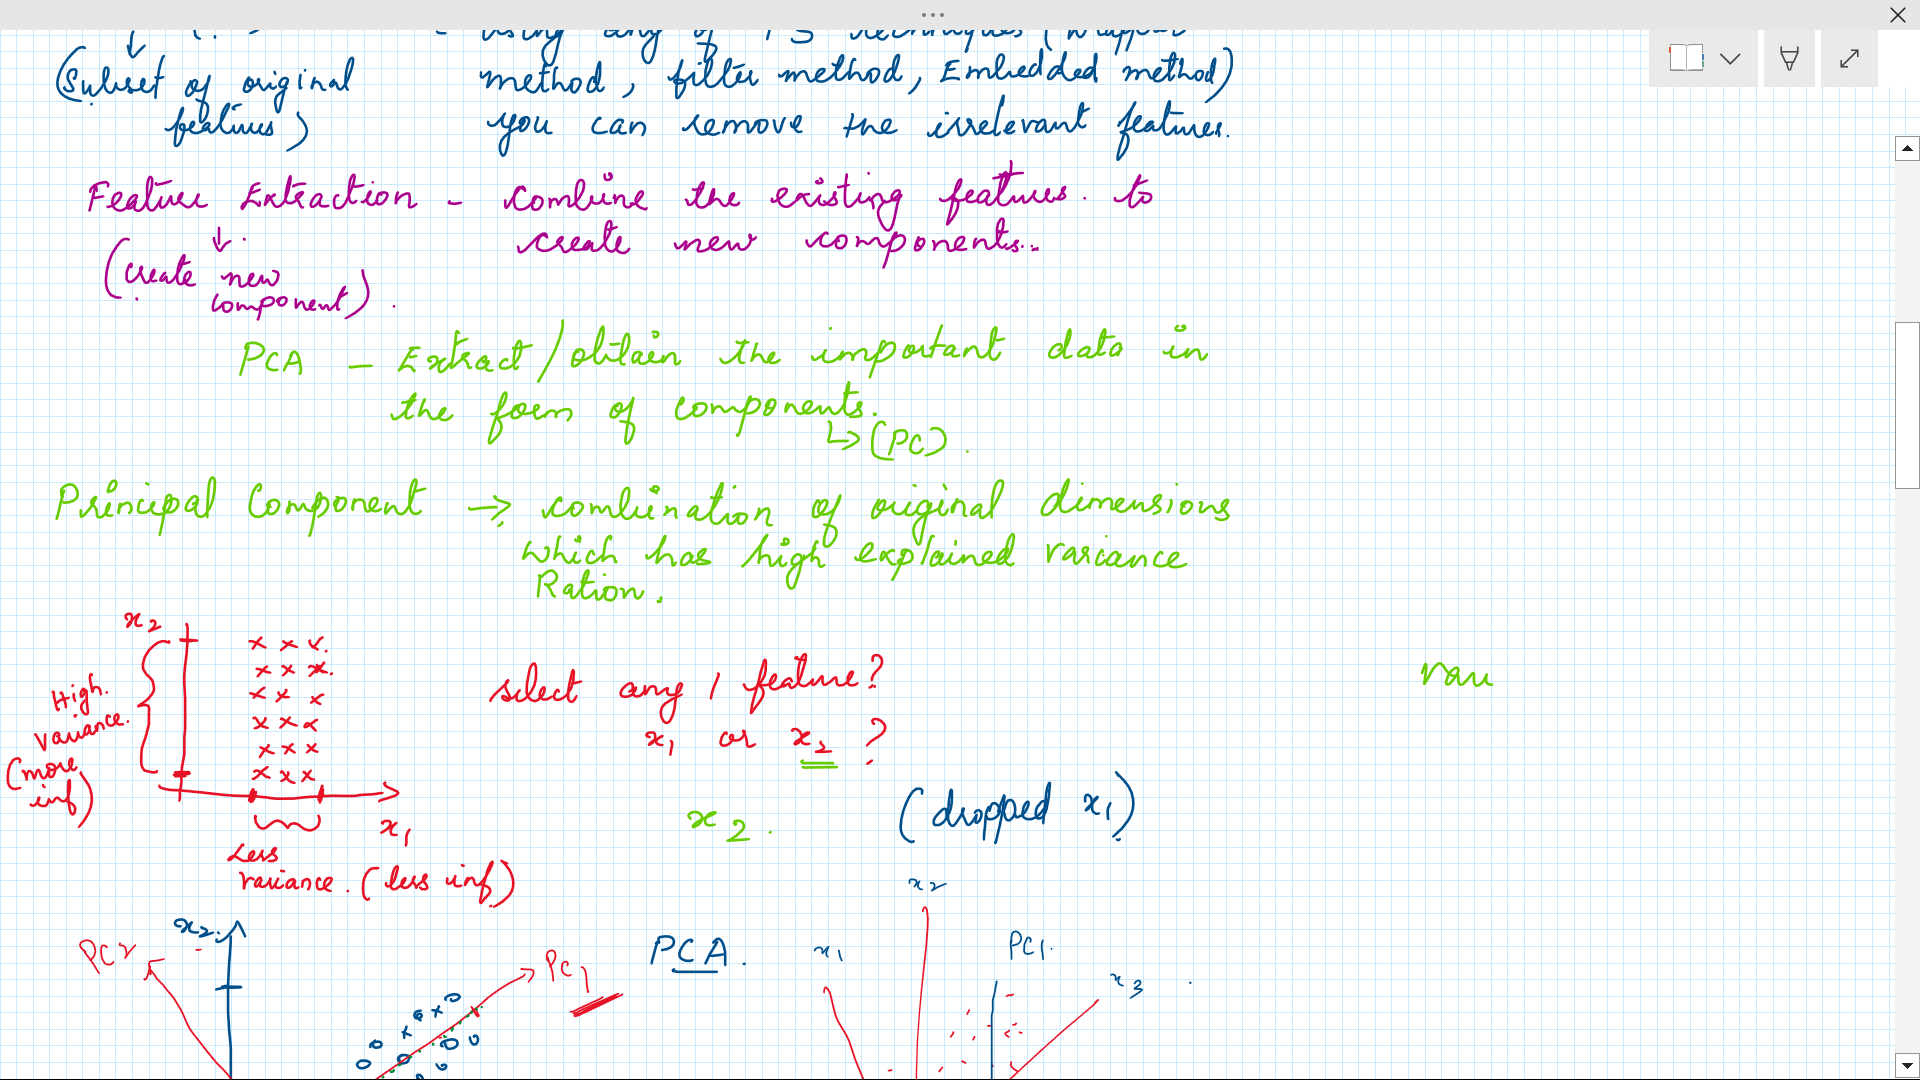 using any of FS techniques (wrapper
(Subset of original
features)
method, filter method, Embedded method)
you can remove the irrelevant features.
Feature Extraction - combine the existing features. to
create new components..
(create new
component).
PCA - Extract/obtain the important data in
the form of components.
↳ (PC).
Principal Component → combination of original dimensions
which has high explained variance
Ration.
x2
High.
variance.
(more
inf)
x1
Less
variance. (less inf)
select any 1 feature?
x1 or x2 ?
x2.
(dropped x1)
x2.
PC2
PC1
PCA.
x1
x2
PC1.
x3